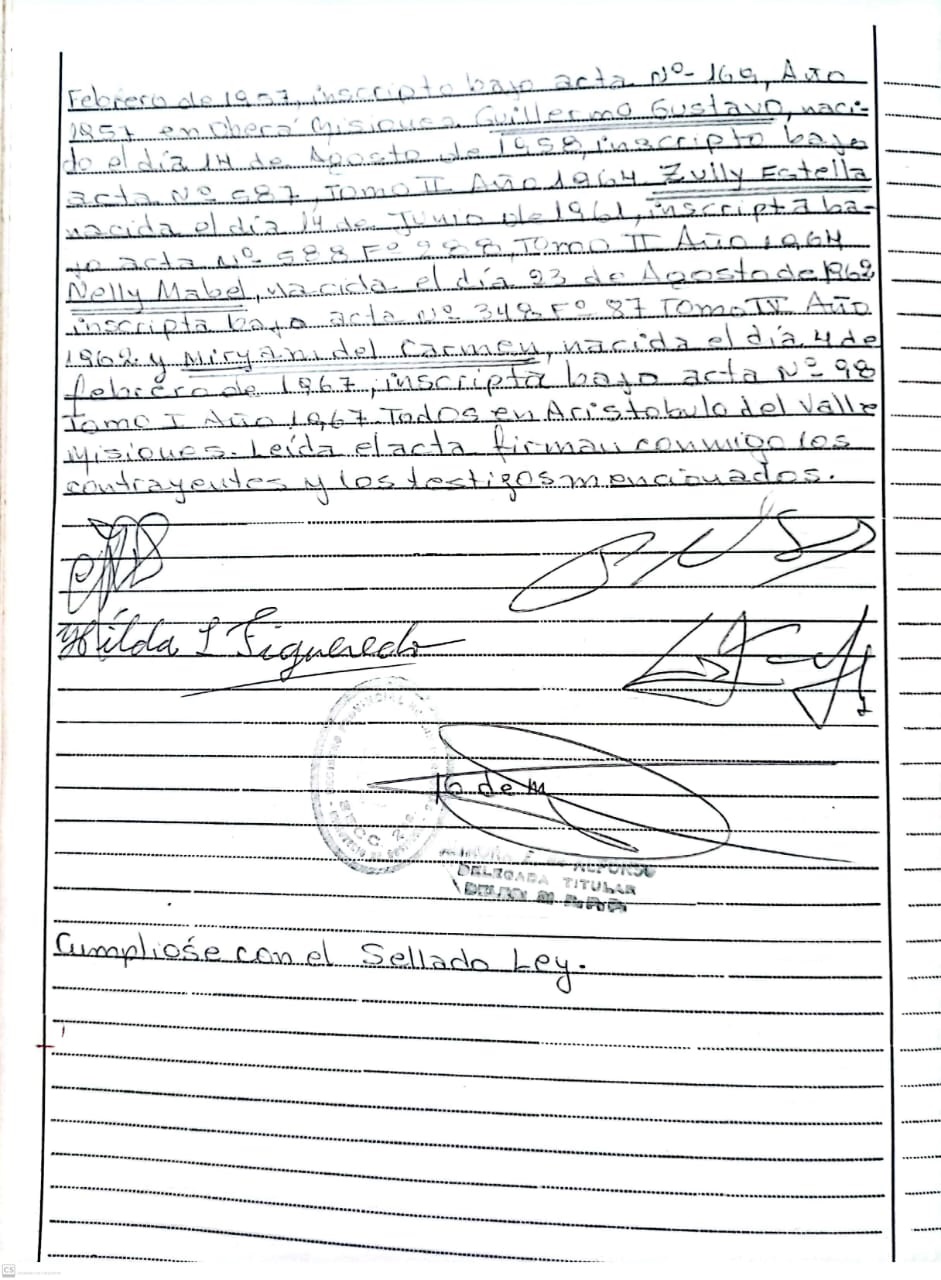 Febrero de 1957, inscripto bajo acta Nº- 169, Año
1957 en Oberá Misiones. Guillermo Gustavo, naci-
do el día 14 de Agosto de 1958, inscripto bajo
acta Nº 587, Tomo II Año 1964. Zully Estella
nacida el día 14 de Junio de 1961, inscripta ba-
jo acta Nº 588 Fº 288, Tomo II Año 1964
Nelly Mabel, nacida el día 23 de Agosto de 1962
inscripta bajo acta Nº 348 Fº 87 Tomo IV Año
1962 y Miryam del Carmen, nacida el día 4 de
febrero de 1967, inscripta bajo acta Nº 98
Tomo I Año 1967. Todos en Aristobulo del Valle
Misiones. Leída el acta firman conmigo los
contrayentes y los testigos mencionados.
Hilda L Figueredo
16 de m
DELEGADA TITULAR
Cumpliose con el Sellado Ley.
CS